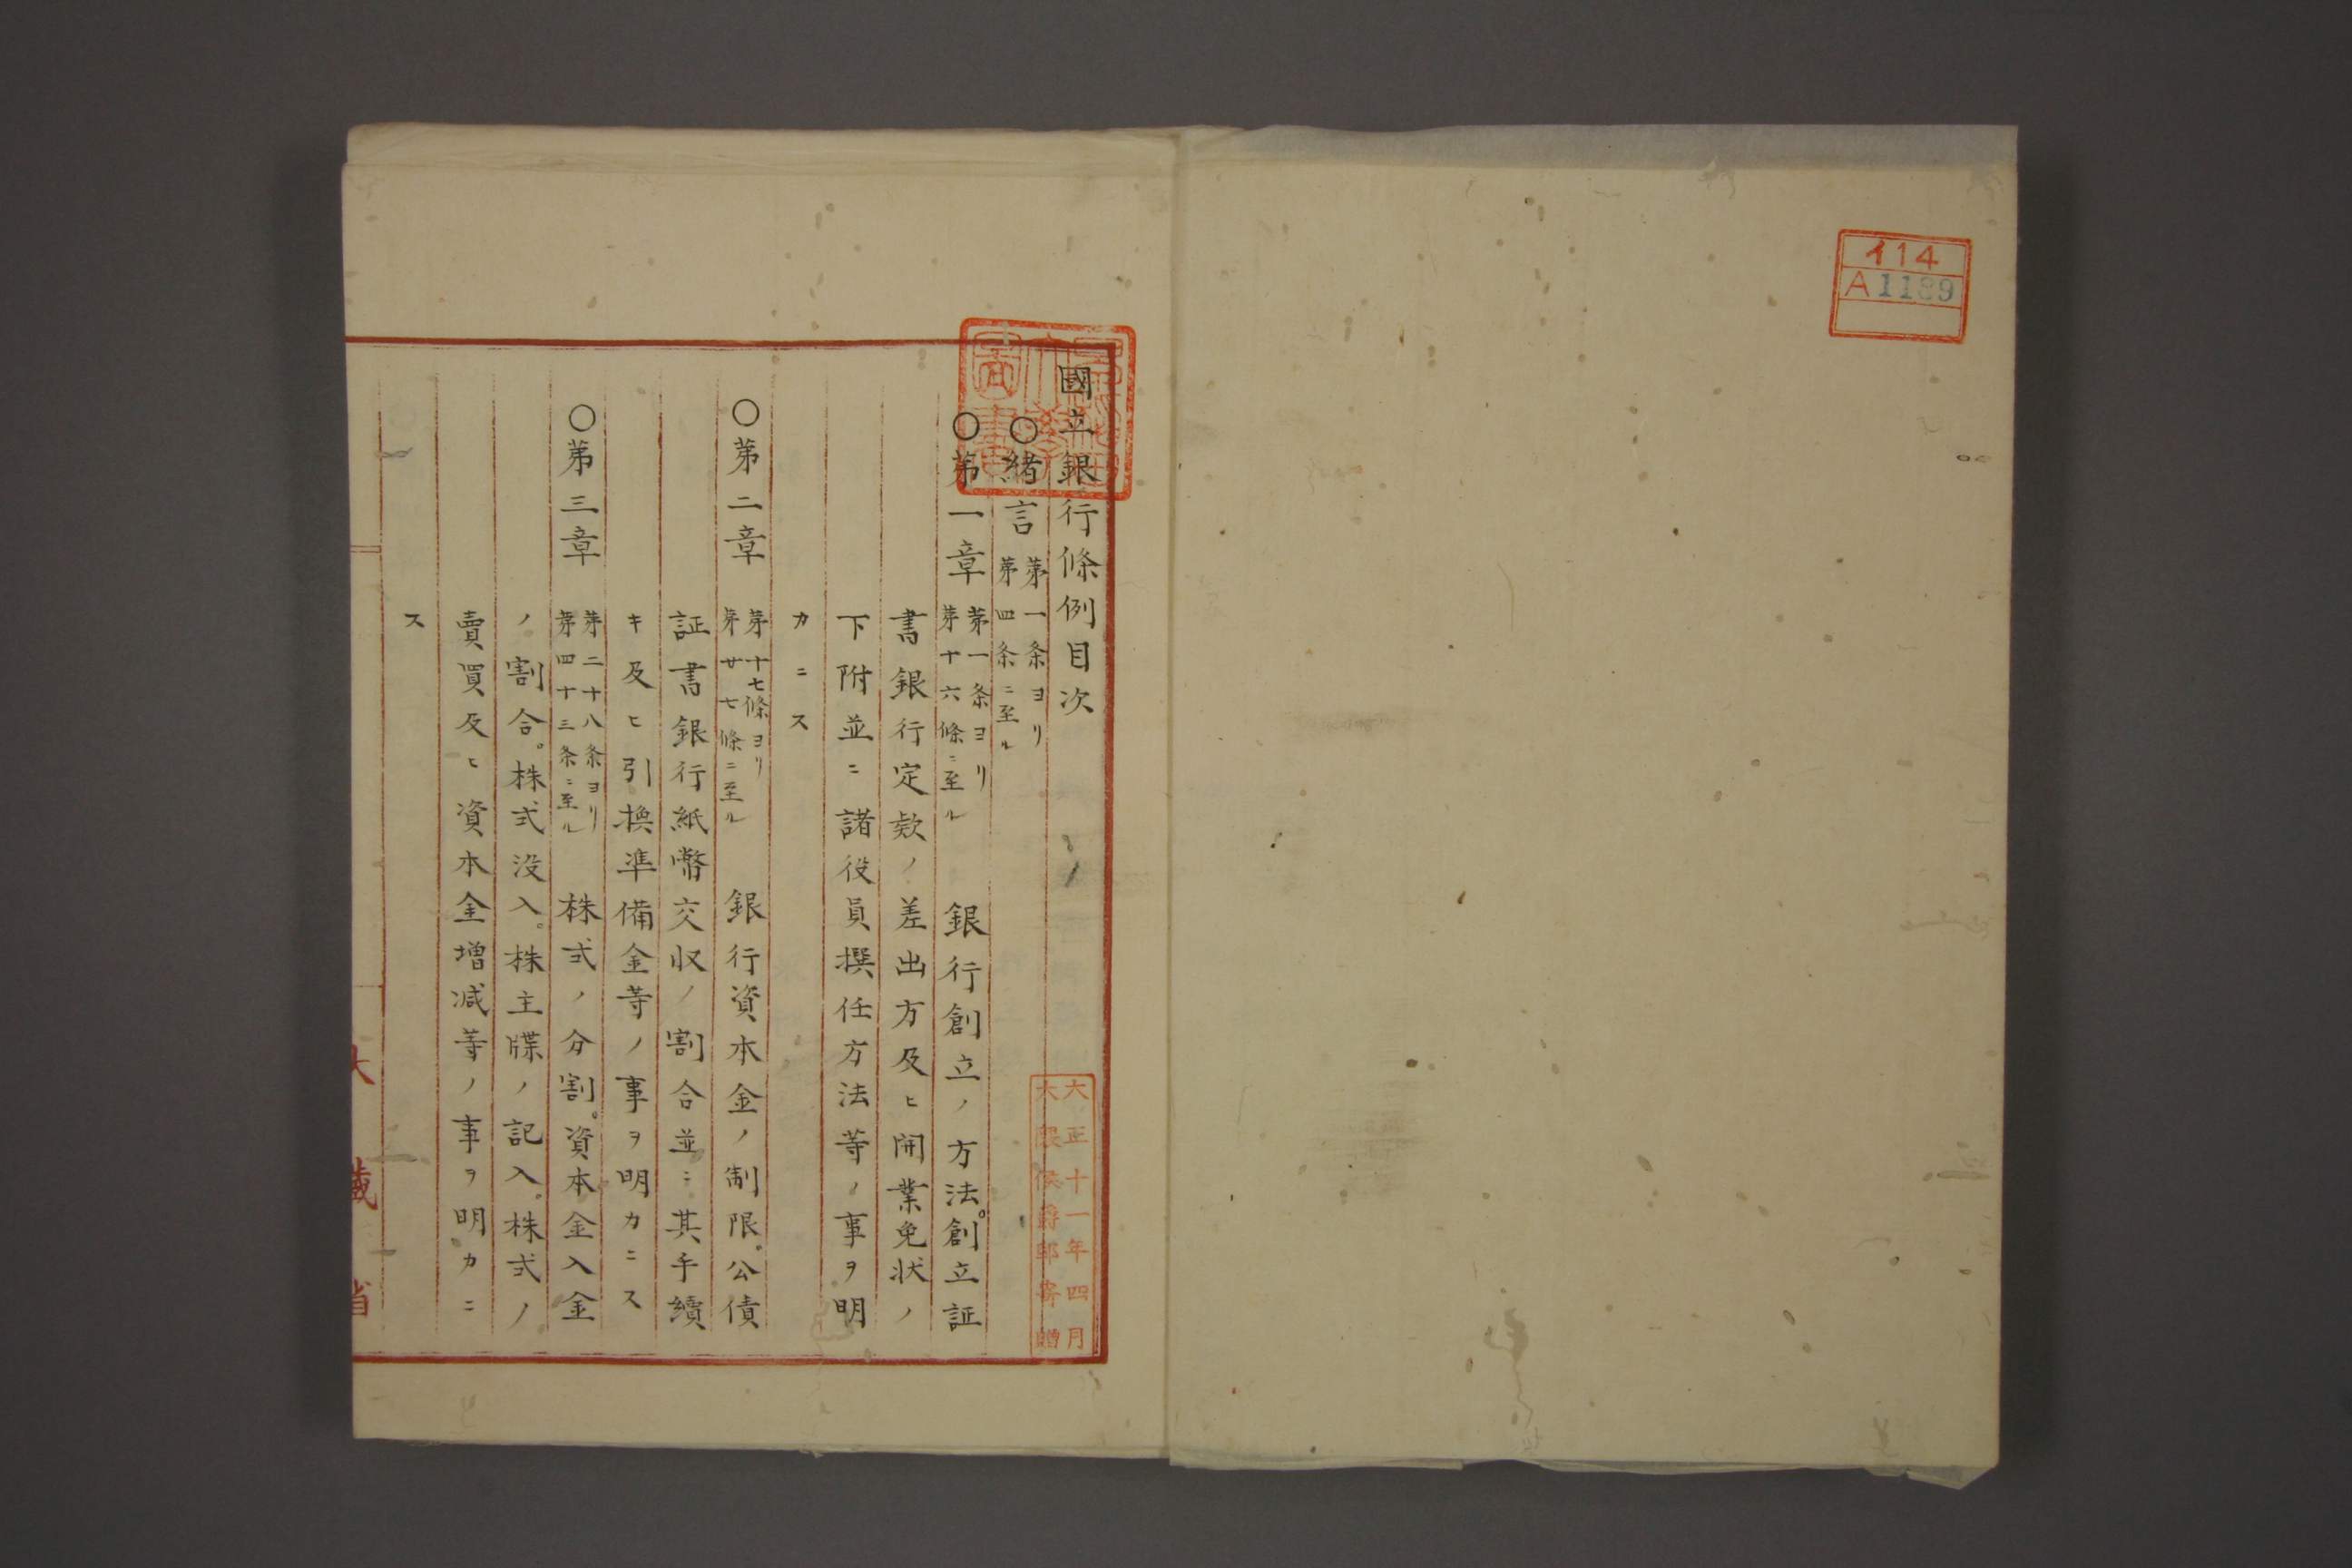 イ14
A1189
國立銀行條例目次
○緒言 第一条ヨリ
第四条ニ至ル
○第一章 第一条ヨリ
第十六條ニ至ル 銀行創立ノ方法。創立証
書銀行定款ノ差出方及ヒ開業免状ノ
下附並ニ諸役員撰任方法等ノ事ヲ明
カニス
○第二章 第十七條ヨリ
第廿七條ニ至ル 銀行資本金ノ制限。公債
証書銀行紙幣交収ノ割合並ニ其手續
キ及ヒ引換準備金等ノ事ヲ明カニス
○第三章 第二十八条ヨリ
第四十三条ニ至ル 株式ノ分割。資本金入金
ノ割合。株式没入。株主牒ノ記入。株式ノ
賣買及ヒ資本金増减等ノ事ヲ明カニ
ス
大正十一年四月
大隈侯爵邸寄贈
大藏省